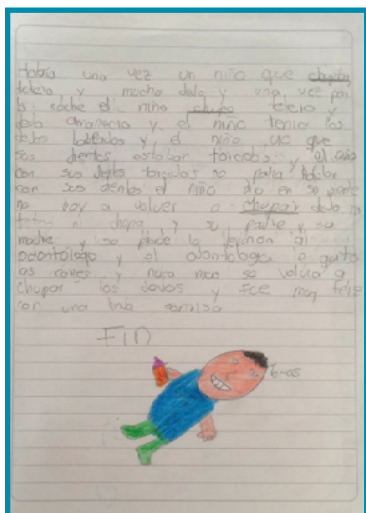 Habia una vez un niño que chupaba
tetero y mucho dedo y una vez por
la noche el niño chupo tetero
dedo amanecio y el niño tenia los
dedos y el niño vio que
sus dientes estaban torcidos y el niño
con sus dientes torcidos no podia hablar
con sus dientes el niño dijo en su mente
no voy a volver a chupar dedo ni
tetero ni chupa y su padre y su
madre y su padre lo llevaron al
odontologo y el odontologo le quito
las caries y nunca mas se volvio a
chupar los dedos y fue muy feliz
con una linda sonrisa
FIN